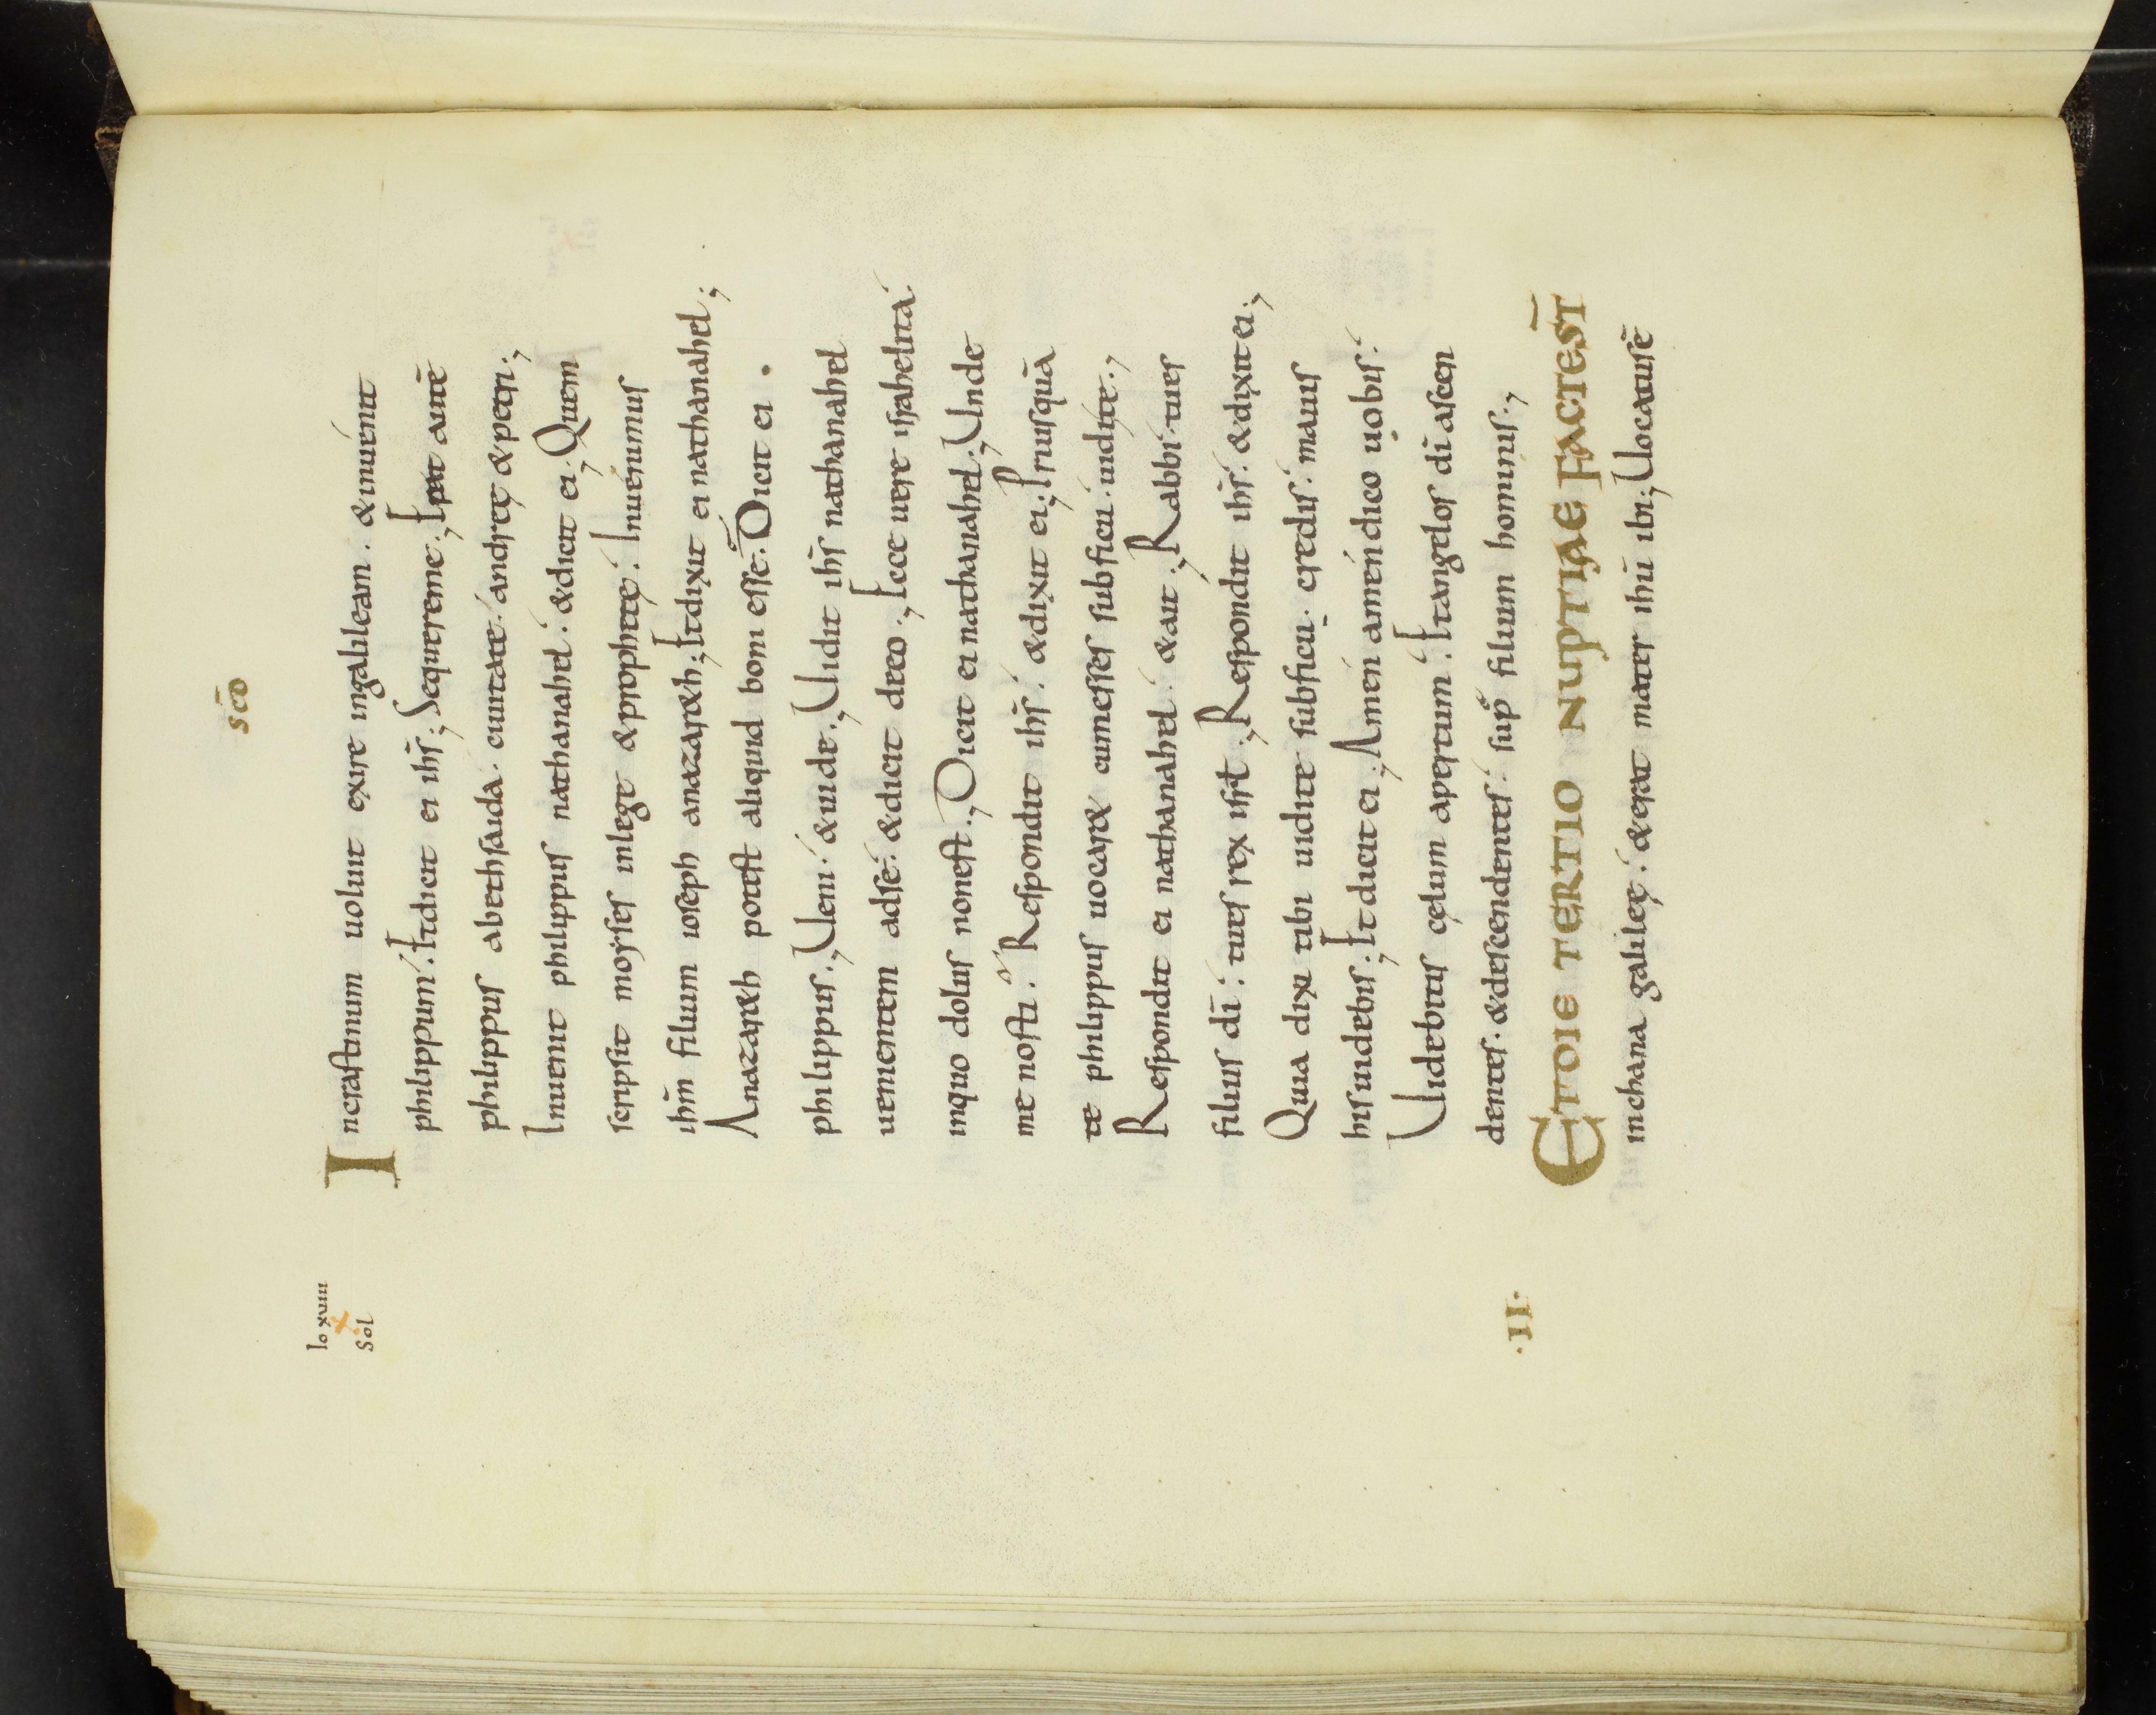 sc̄o
Io xviii
x
Sol
In crastinum uoluit exire ingalileam . & inuenit
philippum . Et dicit ei ih̄s ; Sequereme ; Erat autē
philippus abethsaida . ciuitate . andreę & petri ;
Inuenit philippus nathanahel . & dicit ei ; Quem
scripsit moyses inlege & prophetę . Inuenimus
ih̄m filium ioseph anazar&h ; Et dixit ei nathanahel ;
Anazar&h potest aliquid boni esse ; Dicit ei .
philippus ; Ueni . & uide ; Uidit ih̄s nathanahel
uenientem adsē . & dicit deeo ; Ecce uere israhelita .
inquo dolus nonest ; Dicit ei nathanahel ; Unde
me nosti . Respondit ih̄s . & dixit ei ; Priusquā
te philippus uocar& cumesses subficu . uidite ;
Respondit ei nathanahel . & ait ; Rabbi . tues
filius dī . tues rex isrt ; Respondit ih̄s . & dixit ei ;
Quia dixi tibi uidite subficu . credis . maius
his uidebis ; Et dicit ei ; Amen amen dico uobis .
Uidebitis cęlum apertum . Et angelos dī ascen
dentes . & descendentes . sup̄ filium hominis ;
·II·
ET DIE TERTIO NUPTIAE FACTE ST̄
inchana galileę . & erat mater ihū ibi ; Uocatusē